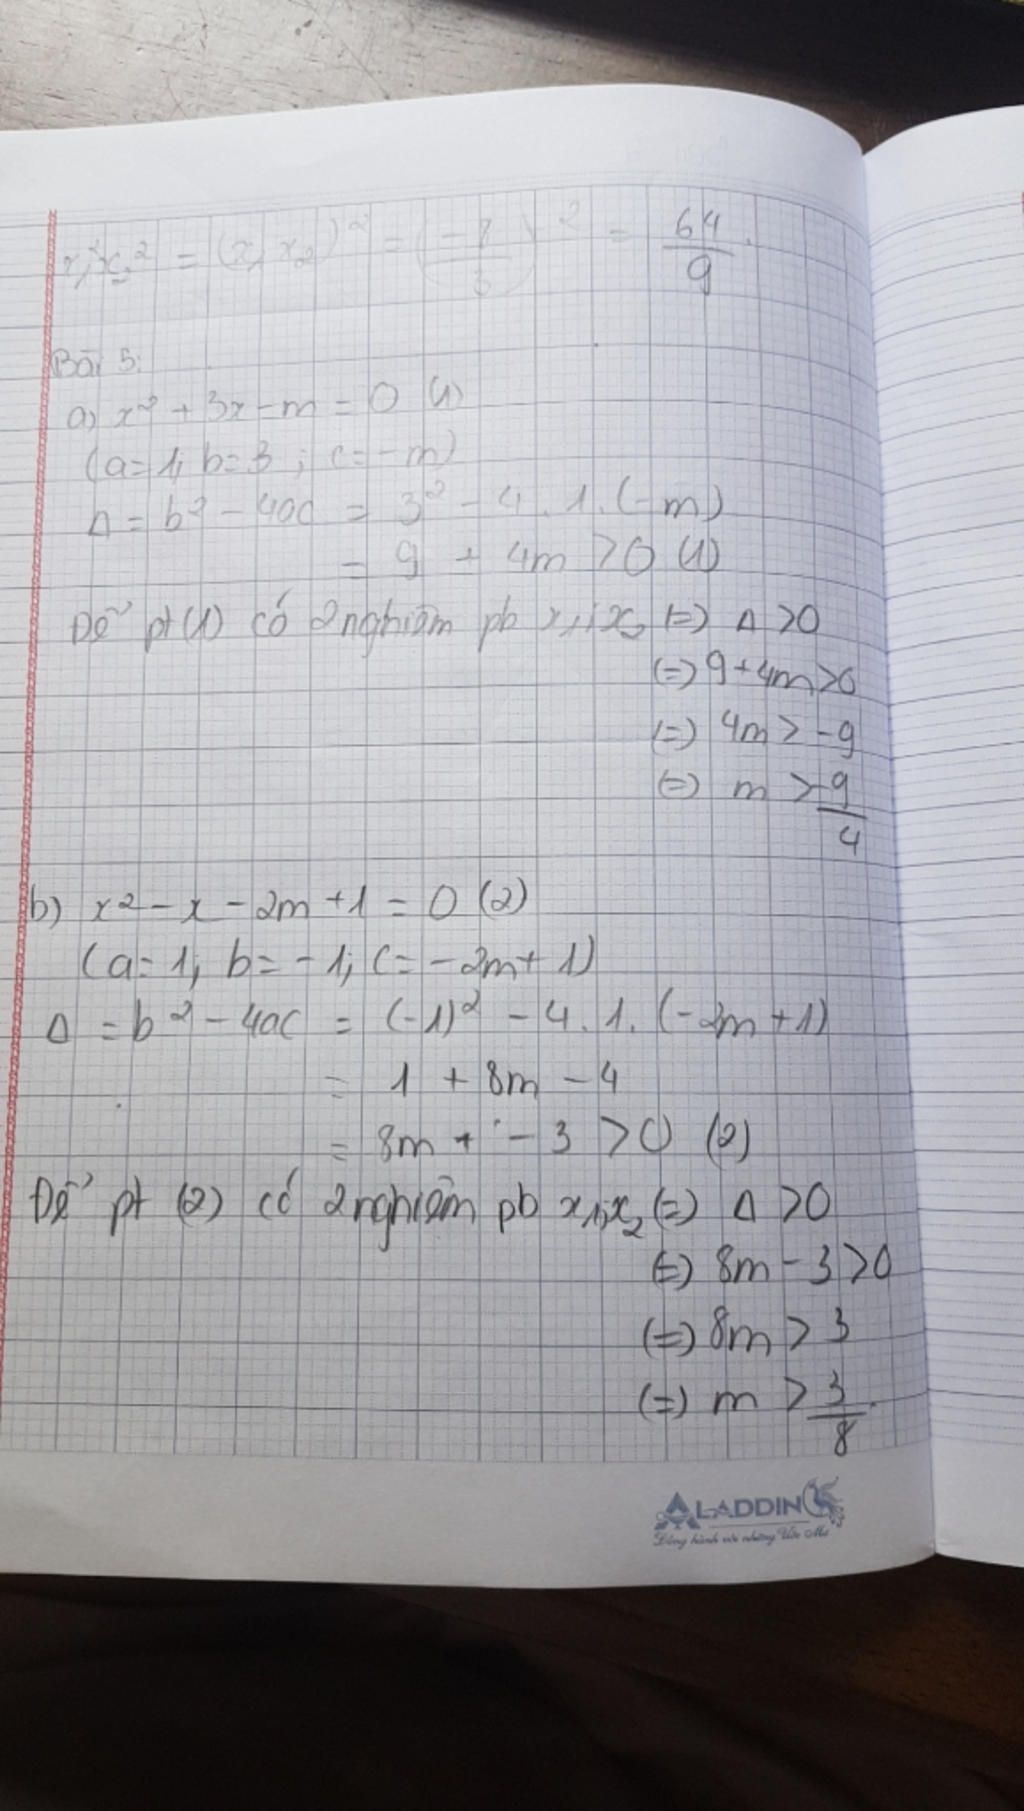 x₁²x₂² = (x₁ x₂)² = (-8/3)² = 64/9.
Bài 5:
a) x² + 3x - m = 0 (1)
(a = 1; b = 3; c = -m)
Δ = b² - 4ac = 3² - 4 . 1 . (-m)
= 9 + 4m > 0 (1)
Để pt (1) có 2 nghiệm pb x₁; x₂ (=) Δ > 0
(=) 9 + 4m > 0
(=) 4m > -9
(=) m > -9/4
b) x² - x - 2m + 1 = 0 (2)
(a = 1; b = -1; c = -2m + 1)
Δ = b² - 4ac = (-1)² - 4 . 1 . (-2m + 1)
= 1 + 8m - 4
= 8m + - 3 > 0 (2)
Để pt (2) có 2 nghiệm pb x₁; x₂ (=) Δ > 0
(=) 8m - 3 > 0
(=) 8m > 3
(=) m > 3/8.
ALADDIN
Đồng hành với những Ước Mơ